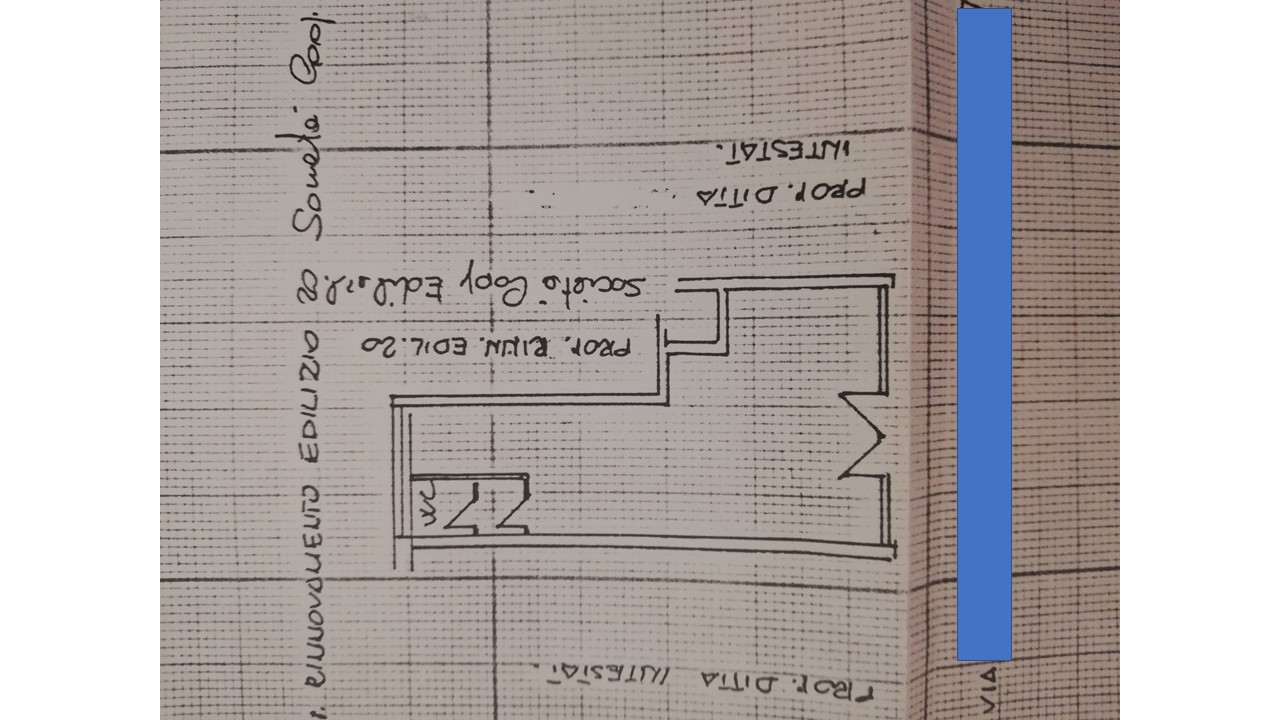 PROP. DITTA INTESTAT.
PROP. RINN. EDIL. 20
Società Copy Edil s.r.l.
PROP. DITTA
INTESTAT.
WC
RINNOVAMENTO EDILIZIO 20 Società Copy.
VIA